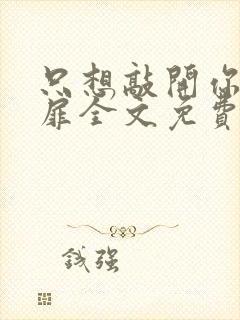 只想敲開你
扉全文免費
錢強